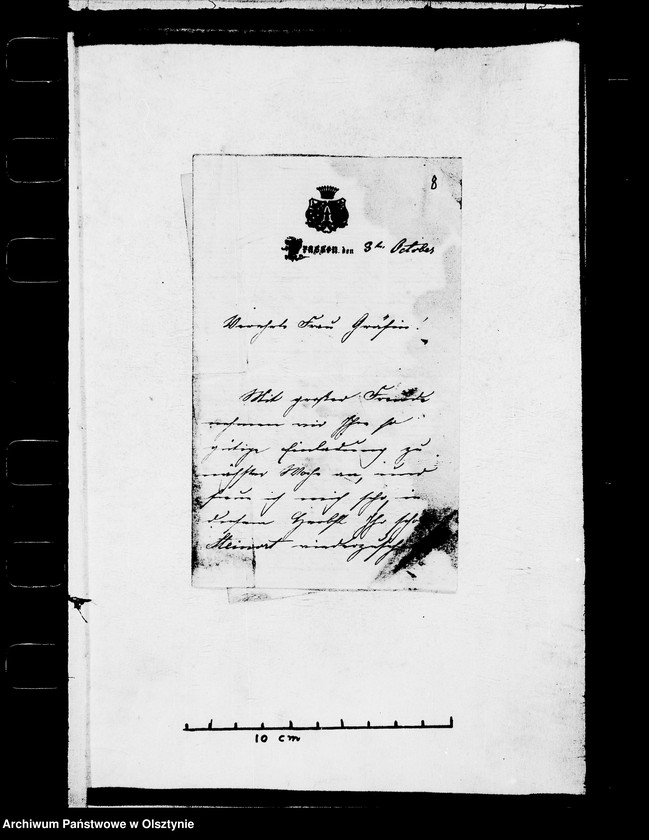 8
Prassen, den 3ten October
Verehrte Frau Gräfin!
Mit großer Freude
nehmen wir Ihre so
gütige Einladung zu
nächster Woche an, und
freue ich mich sehr, in
diesem Herbst Ihr schönes
Steinort wiederzusehen
10 cm
Archiwum Państwowe w Olsztynie